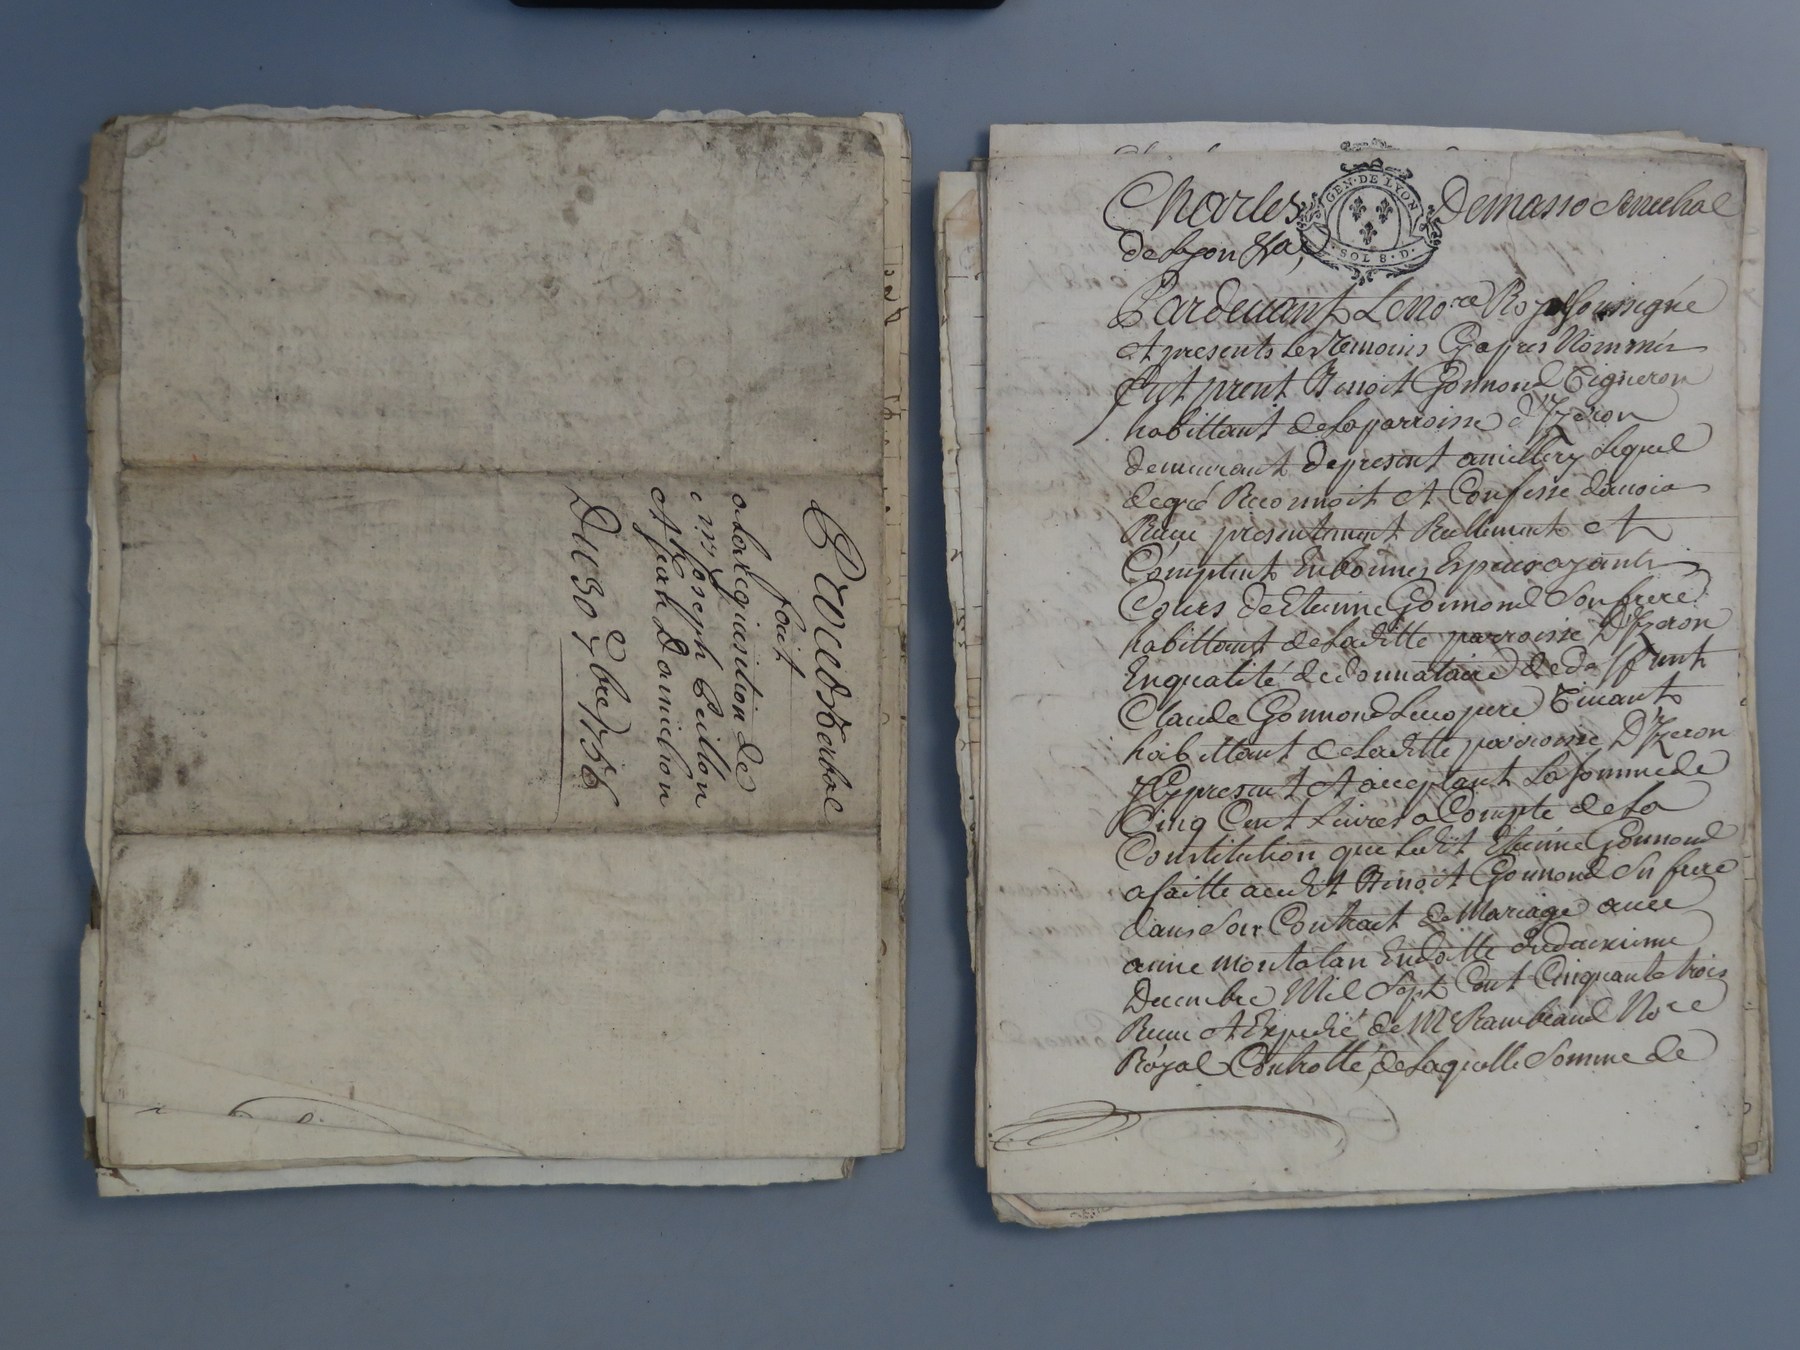 Procès verbal
fait
a La Requisition de
mr Joseph Peillon
et Jean Damichon
Du 30e 7bre 1756
GEN·DE LYON
·SOL 8·D·
Charles Demasso Senechal
de Lyon &a,
Pardevant Le nore Royal soussigné
et presents les Temoins Cy apres Nommés
fut prent Benoit Gonnond Vigneron
habittant de La parroisse d'Yzeron
demeurant de present a millery Lequel
de gré Reconnoit et Confesse d'avoir
Receu presentement Reellement et
Comptant En bonnes Especes ayants
Cours de Etienne Gonnond Son frere
habittant de La ditte parroisse D'Yzeron
En qualité de donnataire de deffunt
Claude Gonnond Leur pere Vivant
habittant de La ditte parroisse D'Yzeron
Cy present et acceptant La Somme de
Cinq Cent Livres a Compte de La
Constitution que Ledit Etienne Gonnond
a faitte audit Benoit Gonnond Son frere
dans Son Contrat de Mariage avec
anne montalan En datte du deuxieme
Decembre Mil Sept Cent Cinquante trois
Receu et Expedié de Me Rambaud Nore
Royal Controllé, de Laquelle Somme de